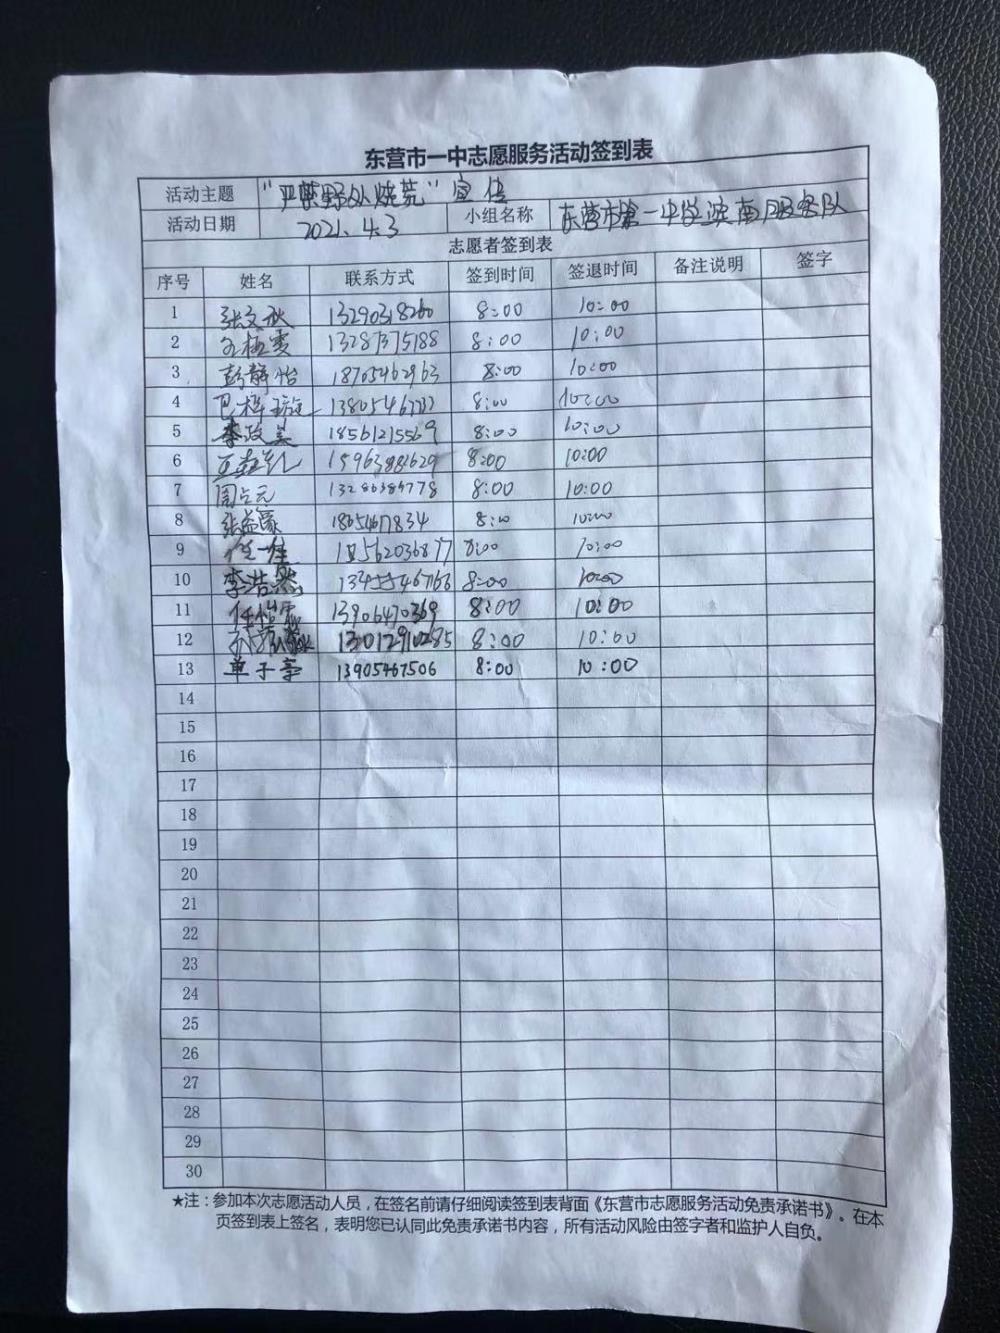 东营市一中志愿服务活动签到表
活动主题 "严禁野外烧荒"宣传
活动日期 2021.4.3 小组名称 东营市第一中学滨南服务队
志愿者签到表
序号 姓名 联系方式 签到时间 签退时间 备注说明 签字
1 张文秋 13290318260 8:00 10:00
2 13287375188 8:00 10:00
3 彭静怡 18705462963 8:00 10:00
4 8:00 10:00
5 李政昊 18561215569 8:00 10:00
6 15963881629 8:00 10:00
7 周占元 8:00 10:00
8 张益豪 1805467834 8:00 10:00
9 任一佳 8:00 10:00
10 李浩然 8:00 10:00
11 13906470369 8:00 10:00
12 13012910285 8:00 10:00
13 单子豪 13905467506 8:00 10:00
14
15
16
17
18
19
20
21
22
23
24
25
26
27
28
29
30
★注：参加本次志愿活动人员，在签名前请仔细阅读签到表背面《东营市志愿服务活动免责承诺书》。在本
页签到表上签名，表明您已认同此免责承诺书内容，所有活动风险由签字者和监护人自负。